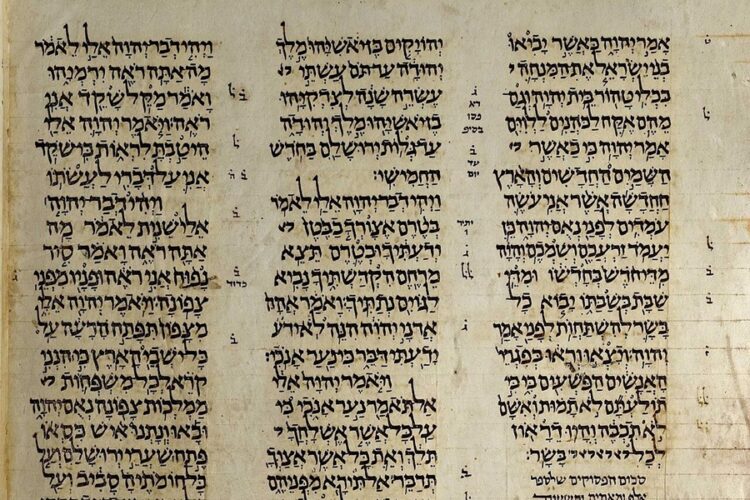 אמר יהוה כאשר יביאו
בני ישראל את המנחה
בכלי טהור בית יהוה וגם
מהם אקח לכהנים ללוים
אמר יהוה כי כאשר
השמים החדשים והארץ
החדשה אשר אני עשה
עמדים לפני נאם יהוה כן
יעמד זרעכם ושמכם והיה
מדי חדש בחדשו ומדי
שבת בשבתו יבוא כל
בשר להשתחות לפני אמר
יהוה ויצאו וראו בפגרי
האנשים הפשעים בי כי
תולעתם לא תמות ואשם
לא תכבה והיו דראון
לכל בשר׃
סכום הפסוקים שלספר
אלף ומאתים ותשעים
יהויקים בן יאשיהו מלך
יהודה עד תם עשתי
עשרה שנה לצדקיהו
בן יאשיהו מלך יהודה
עד גלות ירושלם בחדש
החמישי׃
ויהי דבר יהוה אלי לאמר
בטרם אצורך בבטן
ידעתיך ובטרם תצא
מרחם הקדשתיך נביא
לגוים נתתיך׃ ואמר אהה
אדני יהוה הנה לא ידע
ידעתי דבר כי נער אנכי׃
ויאמר יהוה אלי
אל תאמר נער אנכי כי
על כל אשר אשלחך
תלך ואת כל אשר אצוך
תדבר׃ אל תירא מפניהם
ויהי דבר יהוה אלי לאמר
מה אתה ראה ירמיהו
ואמר מקל שקד אני
ראה׃ ויאמר יהוה אלי
היטבת לראות כי שקד
אני על דברי לעשתו
ויהי דבר יהוה
אלי שנית לאמר מה
אתה ראה ואמר סיר
נפוח אני ראה ופניו מפני
צפונה׃ ויאמר יהוה אלי
מצפון תפתח הרעה על
כל ישבי הארץ׃ כי הנני
קרא לכל משפחות
ממלכות צפונה נאם יהוה
ובאו ונתנו איש כסאו
פתח שערי ירושלם ועל
כל חומתיה סביב ועל